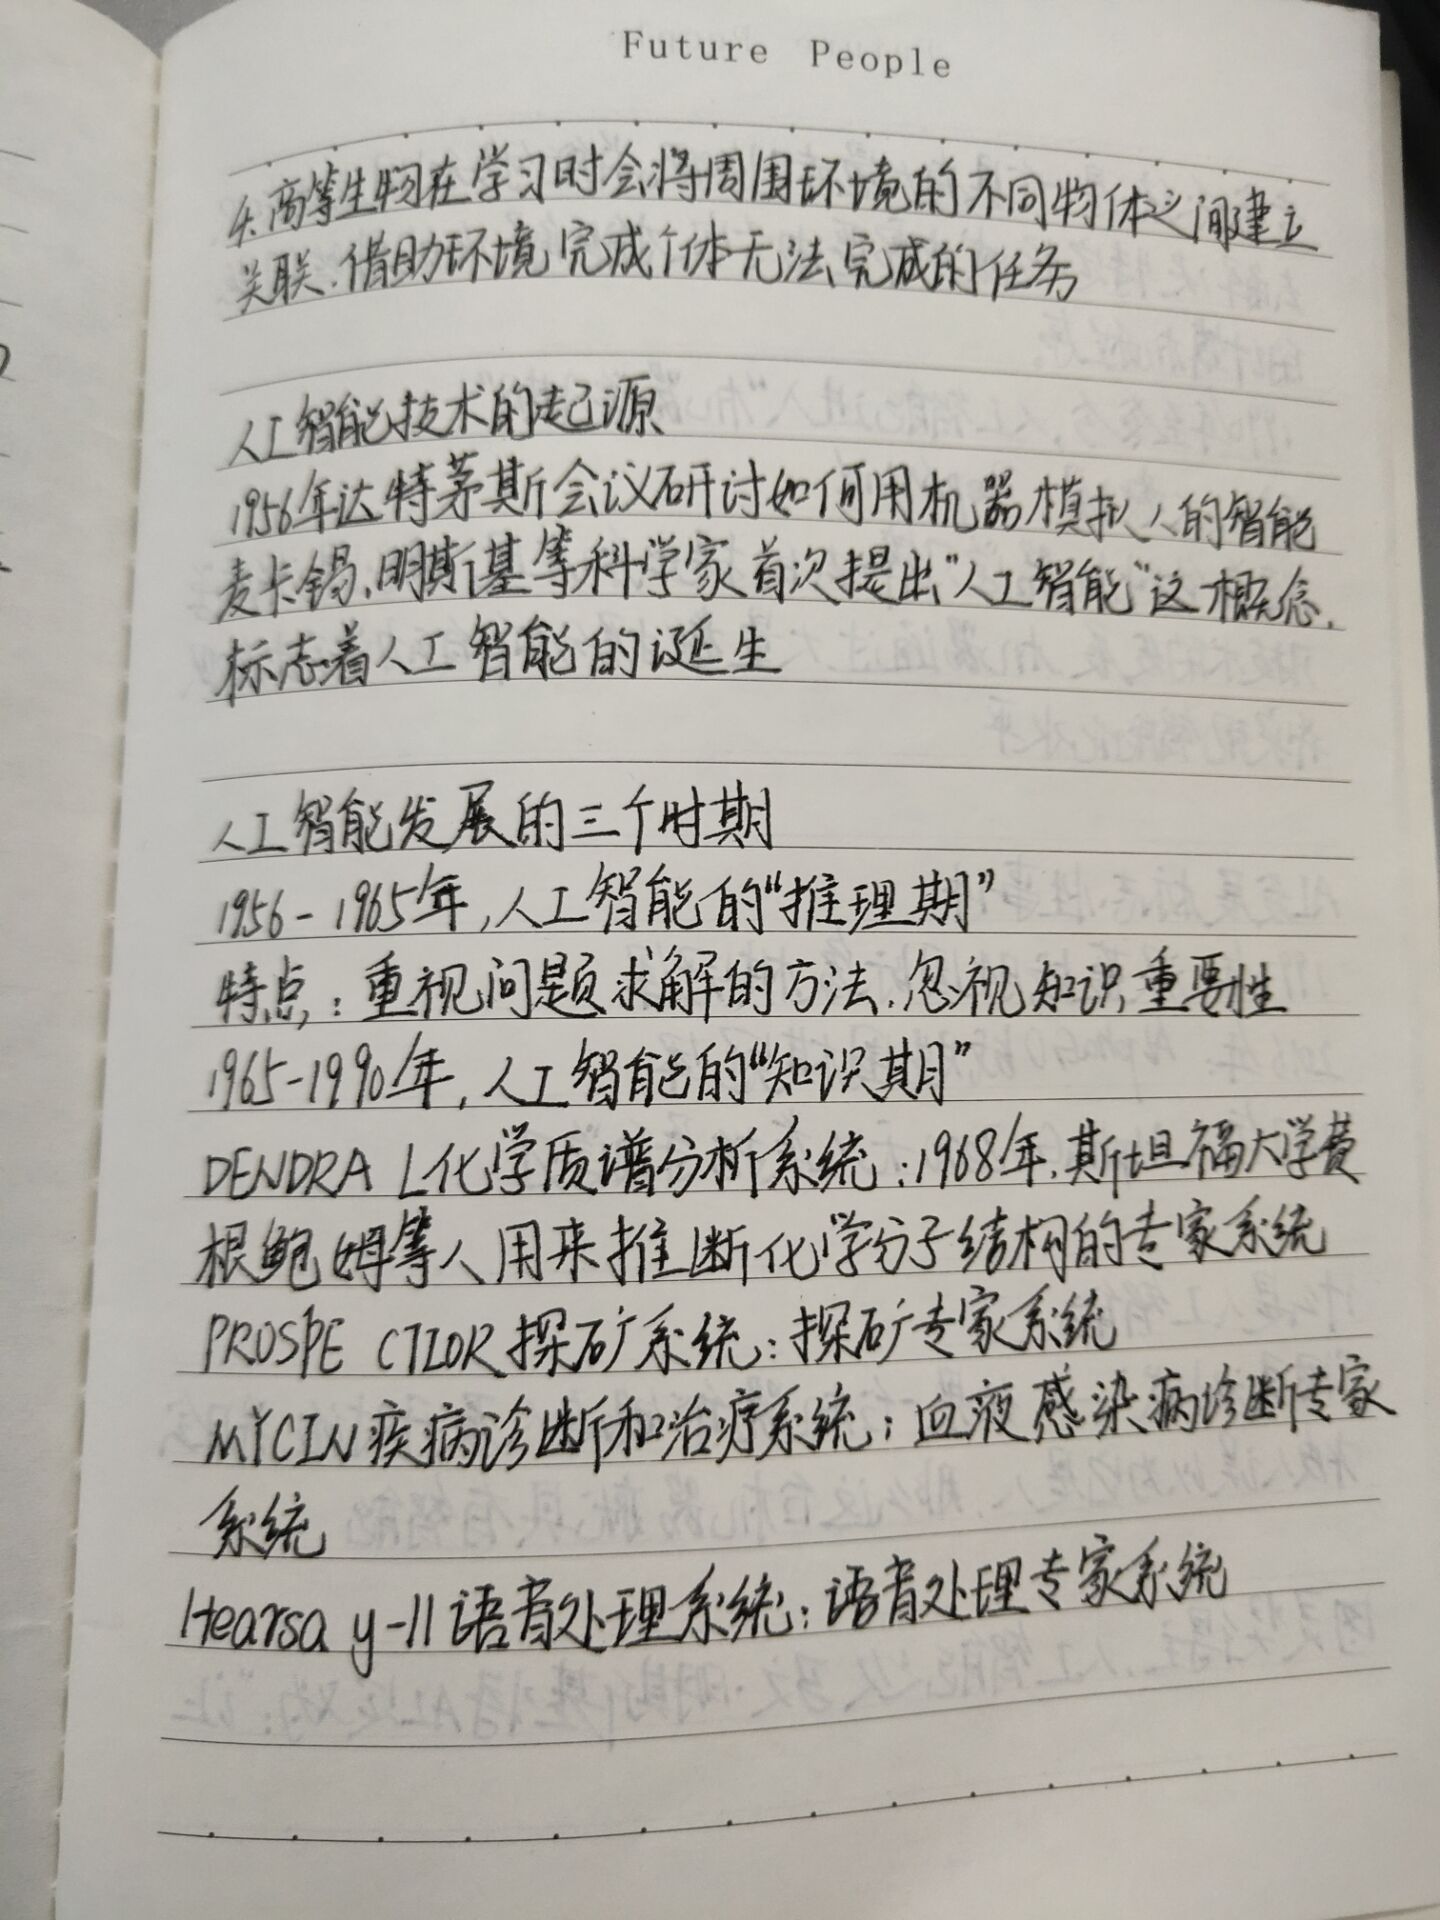 Future People
4.高等生物在学习时会将周围环境的不同物体之间建立
关联.借助环境完成个体无法完成的任务
人工智能技术的起源
1956年达特茅斯会议研讨如何用机器模拟人的智能
麦卡锡、明斯基等科学家首次提出“人工智能”这概念,
标志着人工智能的诞生
人工智能发展的三个时期
1956-1965年,人工智能的“推理期”
特点：重视问题求解的方法.忽视知识重要性
1965-1990年,人工智能的“知识期”
DENDRAL化学质谱分析系统：1968年.斯坦福大学费
根鲍姆等人用来推断化学分子结构的专家系统
PROSPECTIOR探矿系统：探矿专家系统
MYCIN疾病诊断和治疗系统：血液感染病诊断专家
系统
Hearsay-11语音处理系统：语音处理专家系统